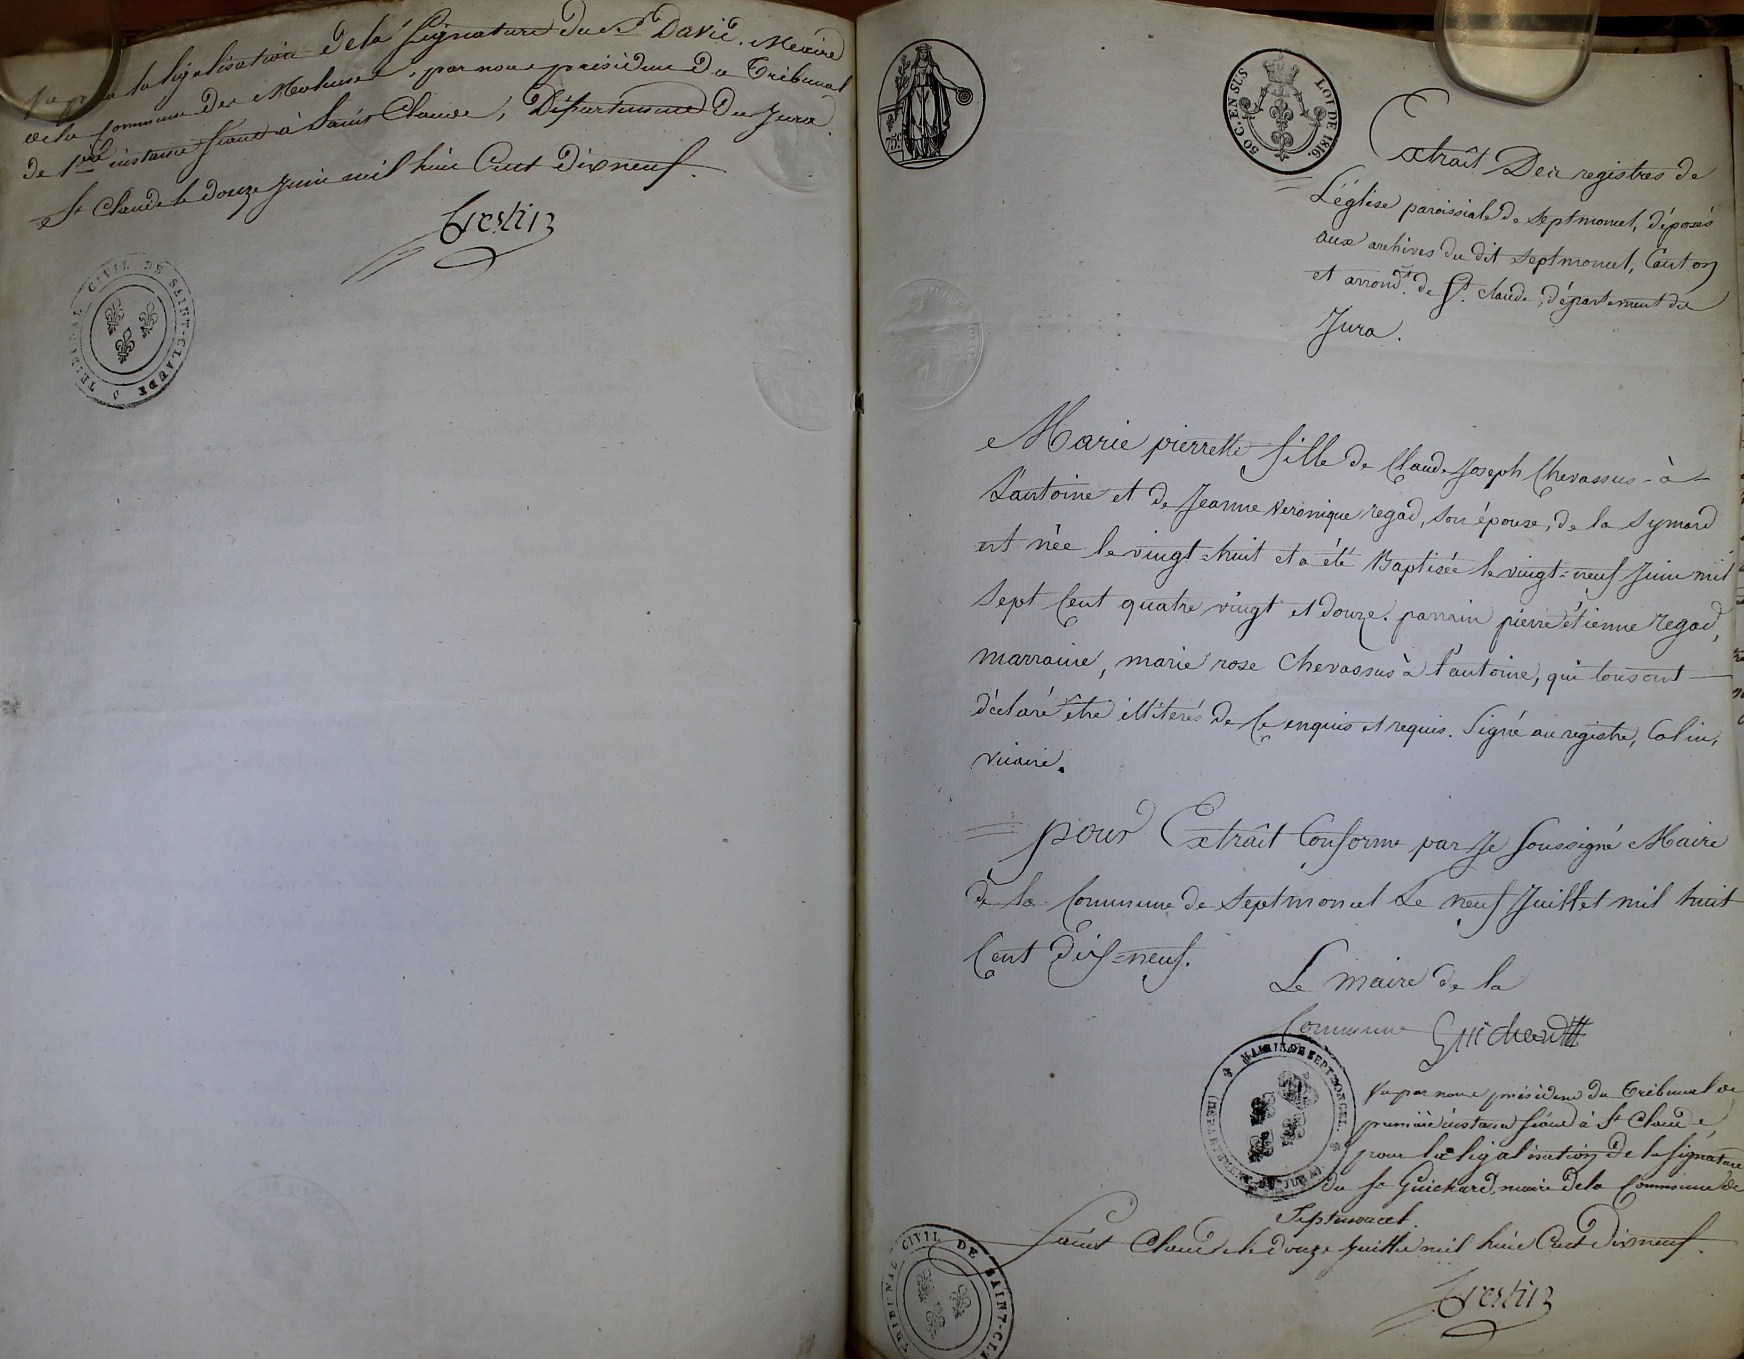 Vu pour la légalisation de la Signature du Sr David, Maire
de la Commune des Molunes, par nous président du Tribunal
de 1ere instance séant à Saint Claude, Département du Jura.
St Claude le douze Juin mil huit Cent Dixneuf.
TRIBUNAL CIVIL DE SAINT-CLAUDE
75c
50 C. EN SUS
LOI DE 1816.
Extrait Des registres de
L'église paroissiale de Septmoncel, déposés
aux archives du dit Septmoncel, Canton
et arrondt. de St. Claude, département du
Jura.
Marie pierrette fille de Claude Joseph Chevassus-à-
Lantoine et de Jeanne Veronique regad, son épouse, de la Symard
est née le vingt-huit et a été Baptisée le vingt-neuf Juin mil
Sept Cent quatre vingt et douze. parrain pierre étienne regad,
marraine, marie rose Chevassus à l'antoine, qui tous ont
déclaré être illiterés de Ce enquis et requis. Signé au registre, Colin,
vicaire.
pour Extrait Conforme par Je Soussigné Maire
de la Commune de Septmoncel Le neuf Juillet mil huit
Cent Dix-neuf.
Le maire de la
Commune Guichard
MAIRIE DE SEPTMONCEL.
(DEPARTEMENT DU JURA)
Vu par nous président du Tribunal de
première instance séant à St Claude,
pour la légalisation de la signature
du Sr Guichard, maire de la Commune de
Septmoncel.
Saint Claude le douze Juillet mil huit Cent Dixneuf.
TRIBUNAL CIVIL DE SAINT-CLA